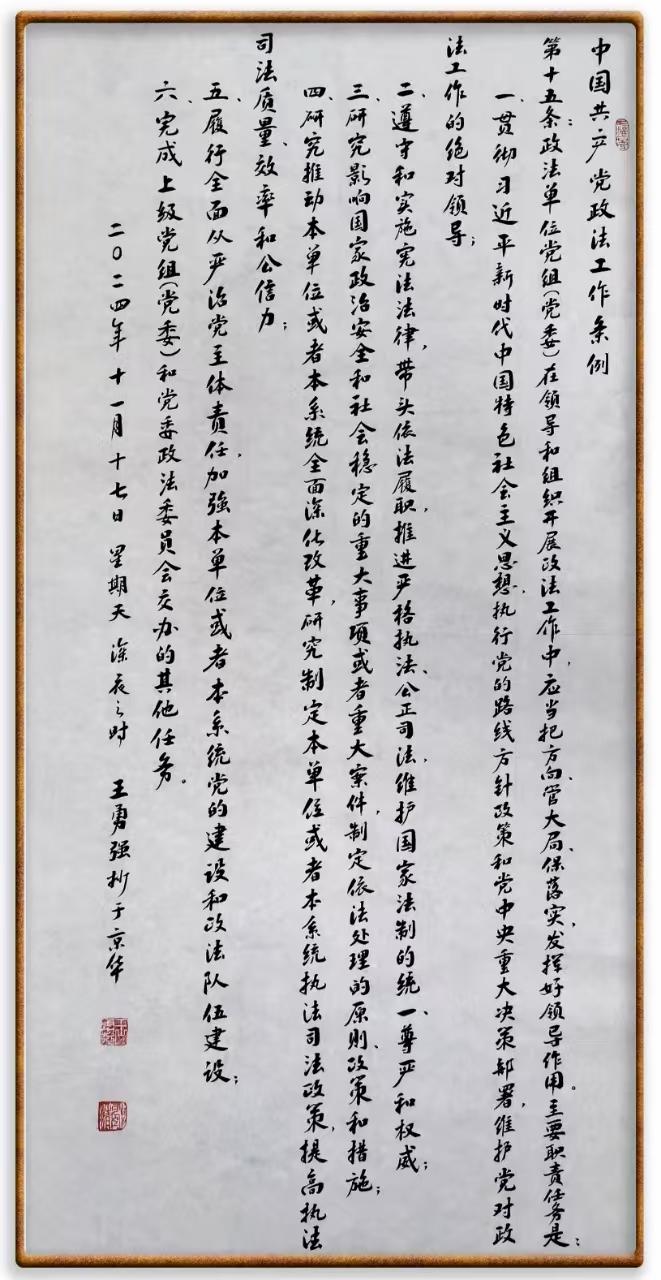 中国共产党政法工作条例
第十五条:政法单位党组(党委)在领导和组织开展政法工作中,应当把方向、管大局、保落实,发挥好领导作用。主要职责任务是:
一、贯彻习近平新时代中国特色社会主义思想,执行党的路线方针政策和党中央重大决策部署,维护党对政
法工作的绝对领导;
二、遵守和实施宪法法律,带头依法履职,推进严格执法、公正司法,维护国家法制的统一、尊严和权威;
三、研究影响国家政治安全和社会稳定的重大事项或者重大案件,制定依法处理的原则、政策和措施;
四、研究推动本单位或者本系统全面深化改革,研究制定本单位或者本系统执法司法政策,提高执法
司法质量、效率和公信力;
五、履行全面从严治党主体责任,加强本单位或者本系统党的建设和政法队伍建设;
六、完成上级党组(党委)和党委政法委员会交办的其他任务。
二〇二四年十一月十七日 星期天 深夜之时 王勇强抄于京华